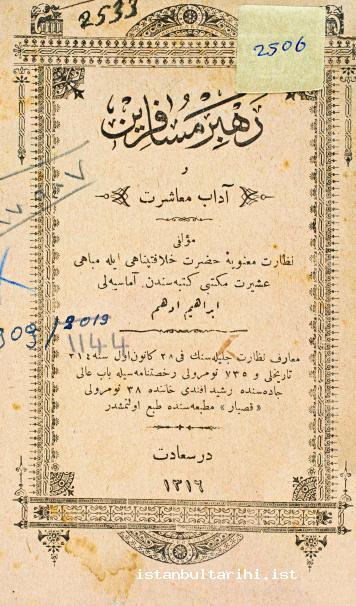 2533
2506
رهبر مسافرین
و
آداب معاشرت
مؤلفی
نظارت معنویهٔ حضرت خلافتپناهی ایله مباهی
عشیرت مکتبی کتبه‌سندن آماسیه‌لی
ابراهیم ادهم
1144
معارف نظارت جلیله‌سنك فی ٢٨ کانون اول سنه ٣١٤
تاریخلی و ٧٣٥ نومرولی رخصتنامه‌سیله باب عالی
جاده‌سنده رشید افندی خاننده ٣٨ نومرولی
« قصبار » مطبعه‌سنده طبع اولنمشدر
در سعادت
١٣١٦
istanbultarihi.ist